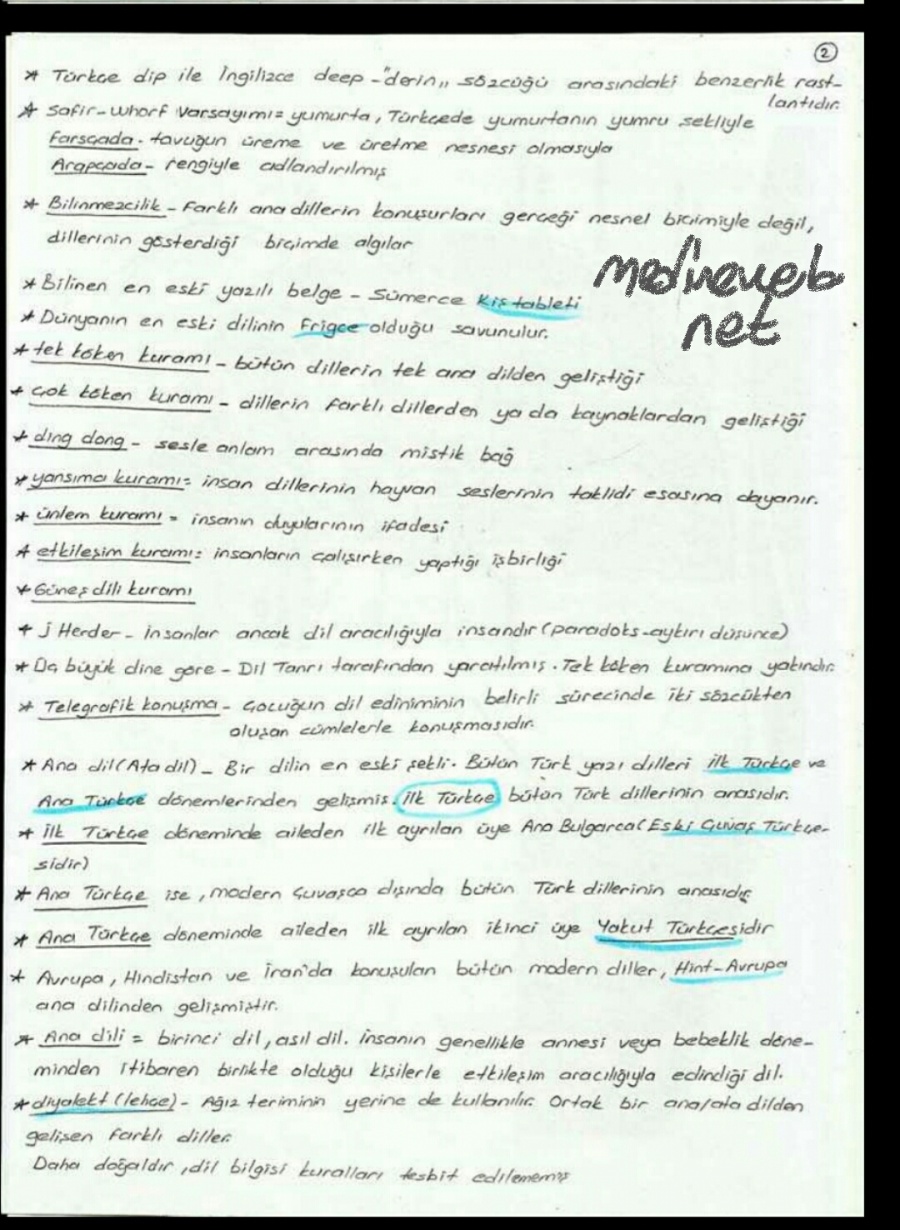 2
* Türkçe dip ile İngilizce deep -"derin,, sözcüğü arasındaki benzerlik rast-
lantıdır.
* Safir-Whorf Varsayımı= yumurta, Türkçede yumurtanın yumru şekliyle
Farsçada- tavuğun üreme ve üretme nesnesi olmasıyla
Arapçada- rengiyle adlandırılmış
* Bilinmezcilik - Farklı ana dillerin konuşurları gerçeği nesnel biçimiyle değil,
dillerinin gösterdiği biçimde algılar
medineweb
net
* Bilinen en eski yazılı belge - Sümerce Kiş tableti
* Dünyanın en eski dilinin Frigce olduğu savunulur.
* tek köken kuramı - bütün dillerin tek ana dilden geliştiği
* Çok köken kuramı - dillerin farklı dillerden ya da kaynaklardan geliştiği
* ding dong - sesle anlam arasında mistik bağ
* yansıma kuramı= insan dillerinin hayvan seslerinin taklidi esasına dayanır.
* ünlem kuramı = insanın duyularının ifadesi
* etkileşim kuramı= insanların çalışırken yaptığı işbirliği
* Güneş dili kuramı
* J Herder- insanlar ancak dil aracılığıyla insandır (paradoks-aykırı düşünce)
* Üç büyük dine göre - Dil Tanrı tarafından yaratılmış. Tek köken kuramına yakındır.
* Telegrafik konuşma - Çocuğun dil ediniminin belirli sürecinde iki sözcükten
oluşan cümlelerle konuşmasıdır.
* Ana dil (Ata dil) - Bir dilin en eski şekli. Bütün Türk yazı dilleri ilk Türkçe ve
Ana Türkçe dönemlerinden gelişmiş. İlk Türkçe bütün Türk dillerinin anasıdır.
* İlk Türkçe döneminde aileden ilk ayrılan üye Ana Bulgarca (Eski Çuvaş Türkçe-
sidir)
* Ana Türkçe ise, modern Çuvaşça dışında bütün Türk dillerinin anasıdır.
* Ana Türkçe döneminde aileden ilk ayrılan ikinci üye Yakut Türkçesidir
* Avrupa, Hindistan ve İran'da konuşulan bütün modern diller, Hint-Avrupa
ana dilinden gelişmiştir.
* Ana dili = birinci dil, asıl dil. İnsanın genellikle annesi veya bebeklik döne-
minden itibaren birlikte olduğu kişilerle etkileşim aracılığıyla edindiği dil.
* diyalekt (lehçe) - Ağız teriminin yerine de kullanılır. Ortak bir ana/ata dilden
gelişen farklı diller.
Daha doğaldır, dil bilgisi kuralları tesbit edilememiş